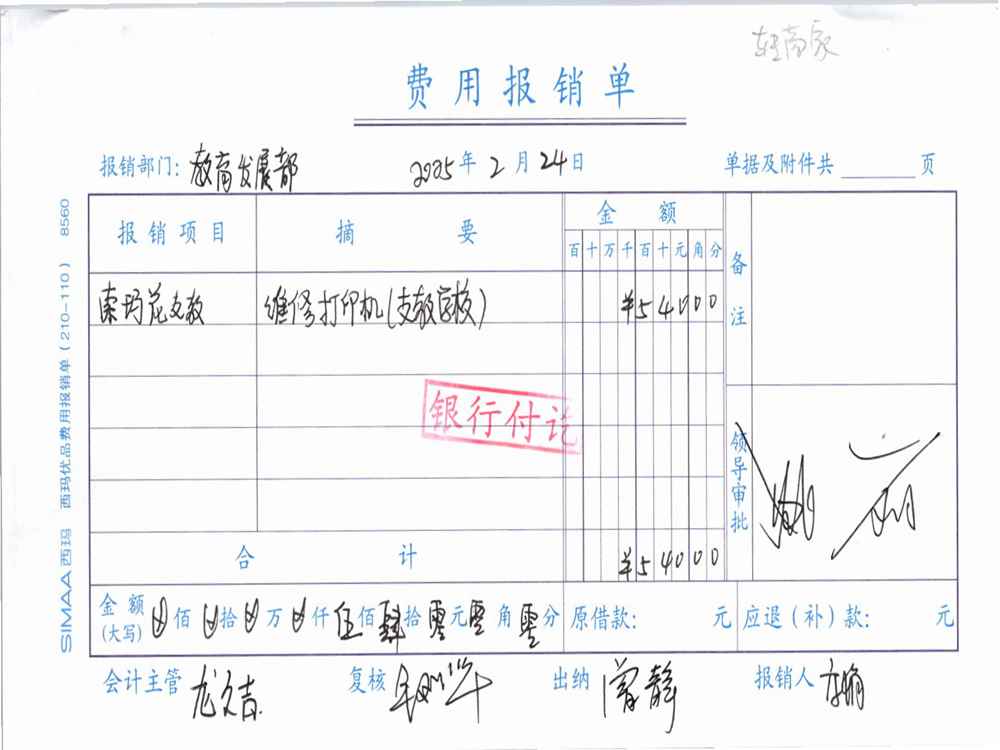 费用报销单
报销部门: 教育发展部 2025年2月24日 单据及附件共 页
报销项目 摘要 金额 备注
百十万千百十元角分
索玛花支教 维修打印机(支教学校) ¥54000
银行付讫
领导审批
合计 ¥54000
金额(大写) 佰 拾 万 仟 伍佰肆拾零元零角零分 原借款: 元 应退(补)款: 元
会计主管 龙文吉 复核 出纳 曾静 报销人
SIMAA西玛 西玛优品费用报销单(210-110) 8560